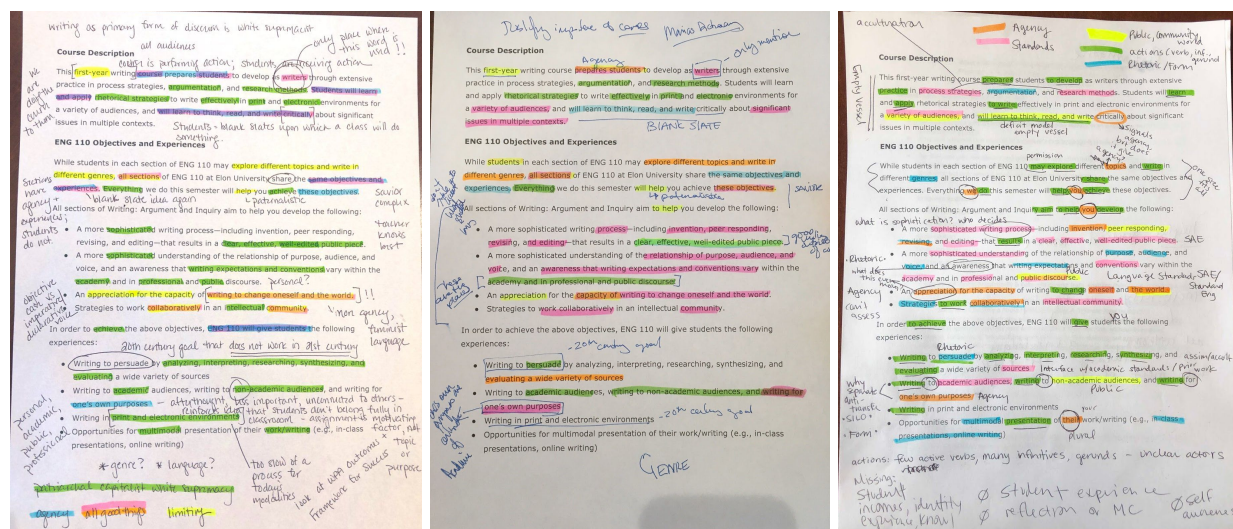 writing as primary form of discussion is white supremacist
all audiences
only place where this word is used!!
Course Description
concept is performing action; students are inquiring action
This first-year writing course prepares students to develop as writers through extensive
practice in process strategies, argumentation, and research methods. Students will learn
and apply rhetorical strategies to write effectively in print and electronic environments for
a variety of audiences, and will learn to think, read, and write critically about significant
issues in multiple contexts.
Students - blank slates upon which a class will do
something.
ENG 110 Objectives and Experiences
While students in each section of ENG 110 may explore different topics and write in
different genres, all sections of ENG 110 at Elon University share the same objectives and
experiences. Everything we do this semester will help you achieve these objectives.
Sections have agency + experiences; students do not.
blank slate idea again
paternalistic
savior complex
teacher knows best
All sections of Writing: Argument and Inquiry aim to help you develop the following:
• A more sophisticated writing process—including invention, peer responding,
revising, and editing—that results in a clear, effective, well-edited public piece.
• A more sophisticated understanding of the relationship of purpose, audience, and
voice, and an awareness that writing expectations and conventions vary within the
academy and in professional and public discourse. personal?
• An appreciation for the capacity of writing to change oneself and the world. !!
• Strategies to work collaboratively in an intellectual community.
In order to achieve the above objectives, ENG 110 will give students the following
experiences:
20th century goal that does not work in 21st century
• Writing to persuade by analyzing, interpreting, researching, synthesizing, and
evaluating a wide variety of sources
• Writing to academic audiences, writing to non-academic audiences, and writing for
one's own purposes - afterthought, less important, unconnected to others -
reinforces idea that students don't belong fully in
• Writing in print and electronic environments
• Opportunities for multimodal presentation of their work/writing (e.g., in-class
presentations, online writing)
personal, academic, public, professional
* genre? * language?
too slow of a process for todays modalities
look at WPA outcomes + framework for success
patriarchal capitalist white supremacy
agency all good things limiting
Course Description
Agency
only mention
This first-year writing course prepares students to develop as writers through extensive
practice in process strategies, argumentation, and research methods. Students will learn
and apply rhetorical strategies to write effectively in print and electronic environments for
a variety of audiences, and will learn to think, read, and write critically about significant
issues in multiple contexts.
BLANK SLATE
ENG 110 Objectives and Experiences
While students in each section of ENG 110 may explore different topics and write in
different genres, all sections of ENG 110 at Elon University share the same objectives and
experiences. Everything we do this semester will help you achieve these objectives.
paternalistic
All sections of Writing: Argument and Inquiry aim to help you develop the following:
• A more sophisticated writing process—including invention, peer responding,
revising, and editing—that results in a clear, effective, well-edited public piece.
• A more sophisticated understanding of the relationship of purpose, audience, and
voice, and an awareness that writing expectations and conventions vary within the
academy and in professional and public discourse.
• An appreciation for the capacity of writing to change oneself and the world.
• Strategies to work collaboratively in an intellectual community.
In order to achieve the above objectives, ENG 110 will give students the following
experiences:
- 20th century goal
• Writing to persuade by analyzing, interpreting, researching, synthesizing, and
evaluating a wide variety of sources
• Writing to academic audiences, writing to non-academic audiences, and writing for
one's own purposes
• Writing in print and electronic environments
- 20th century goal
• Opportunities for multimodal presentation of their work/writing (e.g., in-class
presentations, online writing)
GENRE
acculturation
Agency
Standards
Public, community, world
actions (verb, inf., gerund)
Rhetoric/Form
Course Description
Empty vessel
This first-year writing course prepares students to develop as writers through extensive
practice in process strategies, argumentation, and research methods. Students will learn
and apply rhetorical strategies to write effectively in print and electronic environments for
a variety of audiences, and will learn to think, read, and write critically about significant
issues in multiple contexts.
deficit model
empty vessel
ENG 110 Objectives and Experiences
permission
While students in each section of ENG 110 may explore different topics and write in
different genres, all sections of ENG 110 at Elon University share the same objectives and
experiences. Everything we do this semester will help you achieve these objectives.
All sections of Writing: Argument and Inquiry aim to help you develop the following:
what is sophistication? who decides
• A more sophisticated writing process—including invention, peer responding,
revising, and editing—that results in a clear, effective, well-edited public piece. SAE
• A more sophisticated understanding of the relationship of purpose, audience, and
voice, and an awareness that writing expectations and conventions vary within the
academy and in professional and public discourse.
Public
Language Standard, SAE/
Standard Eng
• An appreciation for the capacity of writing to change oneself and the world.
• Strategies to work collaboratively in an intellectual community.
Rhetoric
Agency
can't assess
you
In order to achieve the above objectives, ENG 110 will give students the following
experiences:
Rhetoric
• Writing to persuade by analyzing, interpreting, researching, synthesizing, and
evaluating a wide variety of sources
• Writing to academic audiences, writing to non-academic audiences, and writing for
one's own purposes Agency
Public
• Writing in print and electronic environments
• Opportunities for multimodal presentation of their work/writing (e.g., in-class
presentations, online writing)
your
plural
Form
actions: few active verbs, many infinitives, gerunds - unclear actors
Missing:
Student incomes, identity
∅ student experience
∅ reflection or MC
∅ self